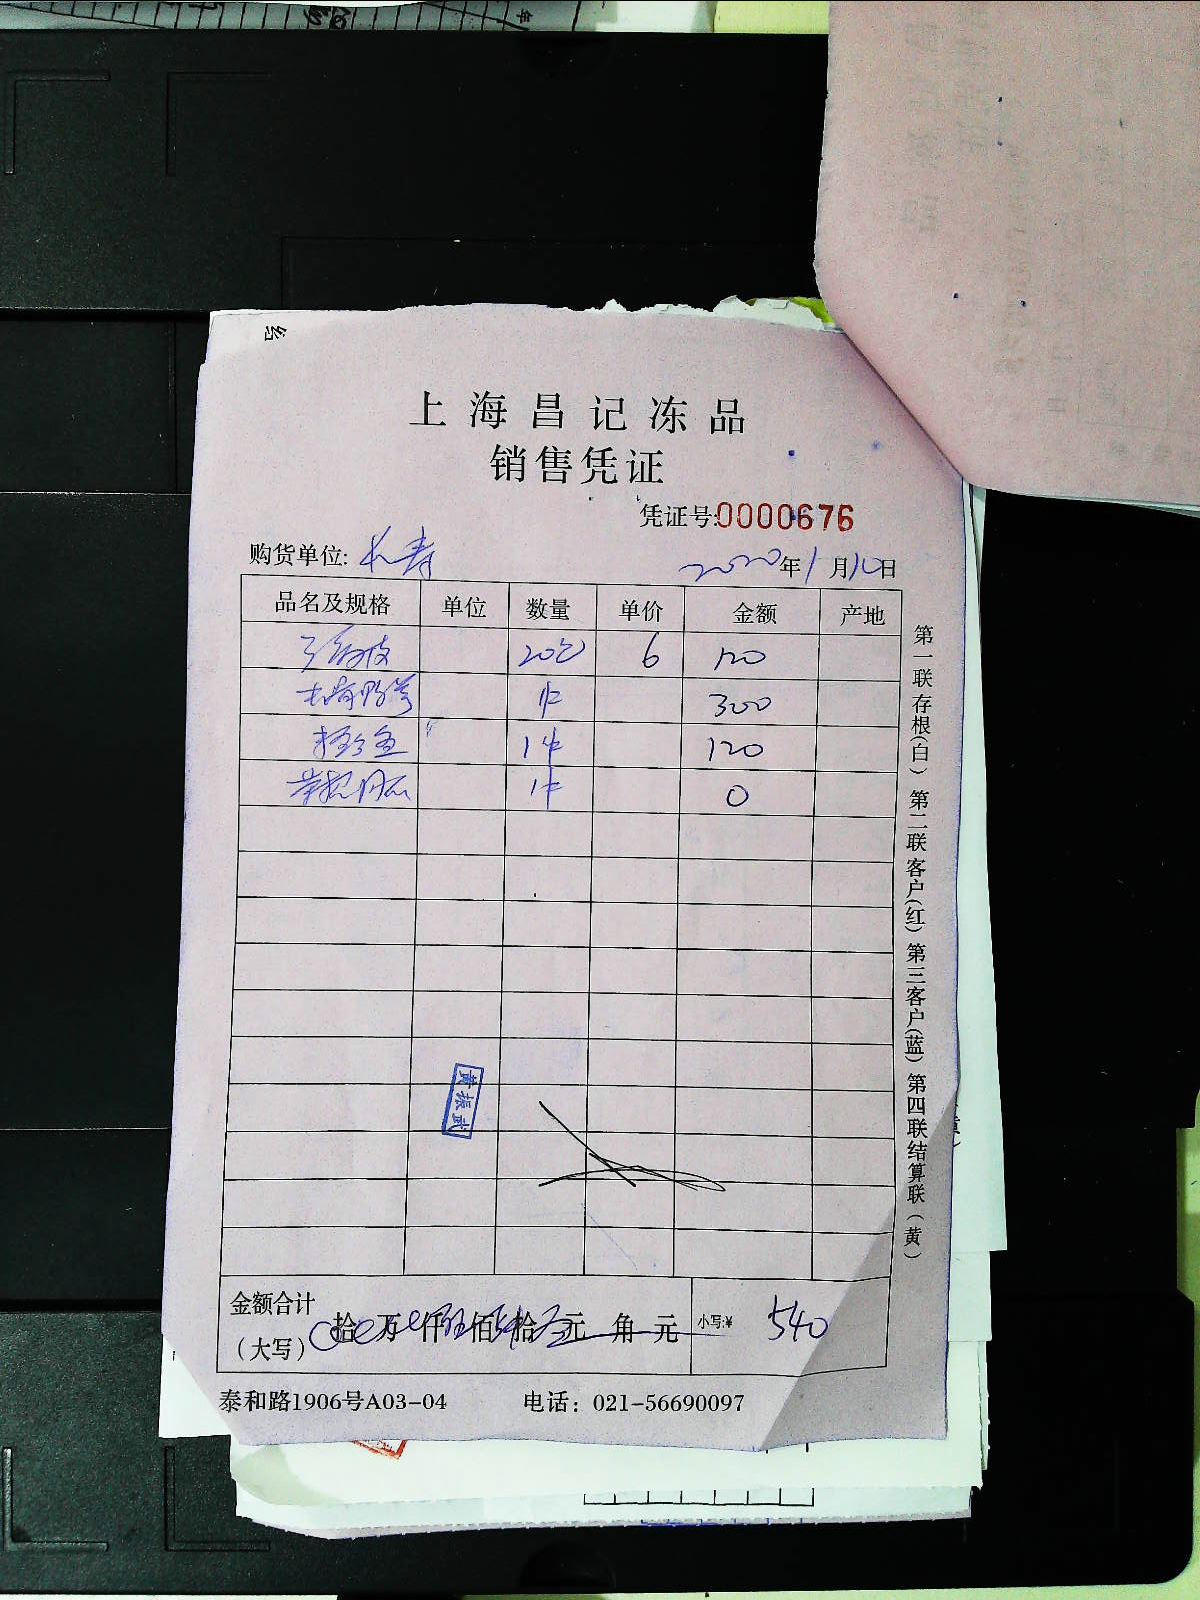 上海昌记冻品
销售凭证
凭证号:0000676
购货单位: 长寿 2020年1月10日
品名及规格 单位 数量 单价 金额 产地
20包 6 120
1件 300
1件 120
1件 0
黄振武
金额合计
(大写) 拾万仟佰拾元角元 小写:¥ 540
泰和路1906号A03-04 电话：021-56690097
第一联存根(白) 第二联客户(红) 第三客户(蓝) 第四联结算联(黄)